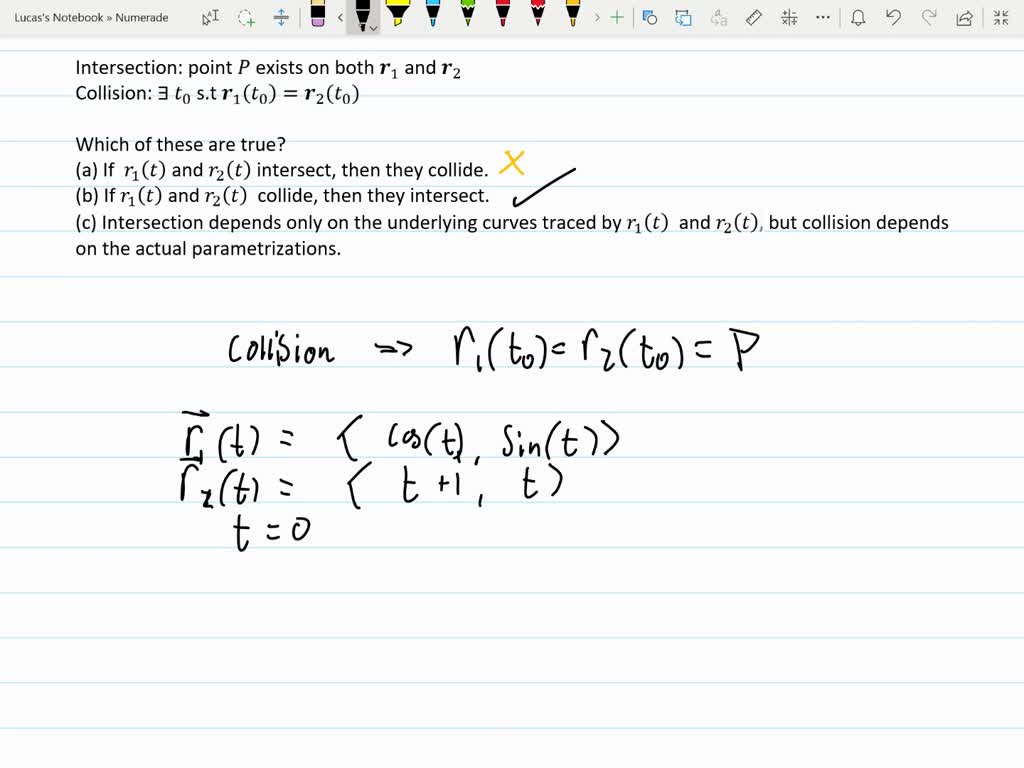 Lucas's Notebook » Numerade
Intersection: point P exists on both r₁ and r₂
Collision: ∃ t₀ s.t r₁(t₀) = r₂(t₀)
Which of these are true?
(a) If r₁(t) and r₂(t) intersect, then they collide. X
(b) If r₁(t) and r₂(t) collide, then they intersect. ✓
(c) Intersection depends only on the underlying curves traced by r₁(t) and r₂(t), but collision depends
on the actual parametrizations.
Collision => r₁(t₀) = r₂(t₀) = P
r⃗₁(t) = ⟨ cos(t), sin(t)⟩
r₂(t) = ⟨ t+1, t⟩
t = 0